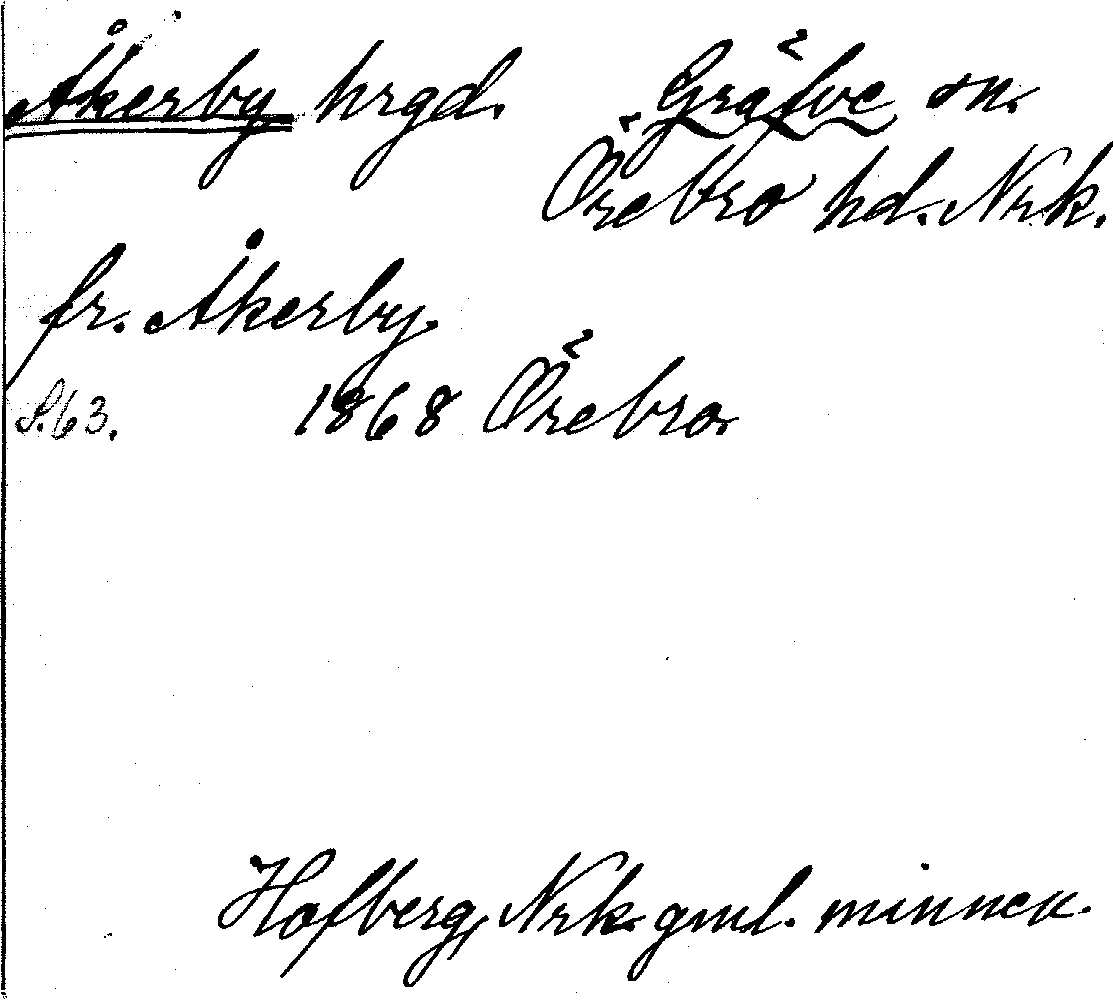 Åkerby hrgd. Gräfve sn.
Örebro hd. Nrk.
fr. Åkerby
S. 63. 1868 Örebro.
Hofberg, Nrk. gml. minnen.